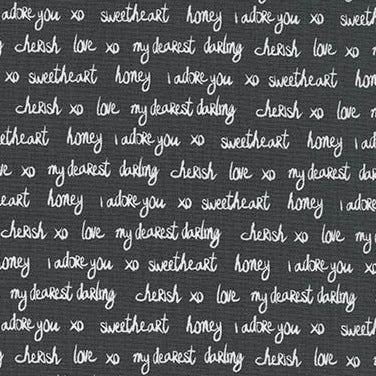 i adore you xo sweetheart honey i adore you xo
cherish love xo my dearest darling cherish love
xo sweetheart honey i adore you xo sweetheart
cherish xo love my dearest darling cherish xo love
sweetheart honey i adore you xo sweetheart honey i ad
xo my dearest darling cherish love xo my dearest dar
heart honey i adore you xo sweetheart honey i ado
cherish xo love my dearest darling cherish xo love my
honey i adore you xo sweetheart honey i adore you xo
my dearest darling cherish xo love my dearest darling
i adore you xo sweetheart honey i adore you xo sweethe
cherish love xo my dearest darling cherish love xo